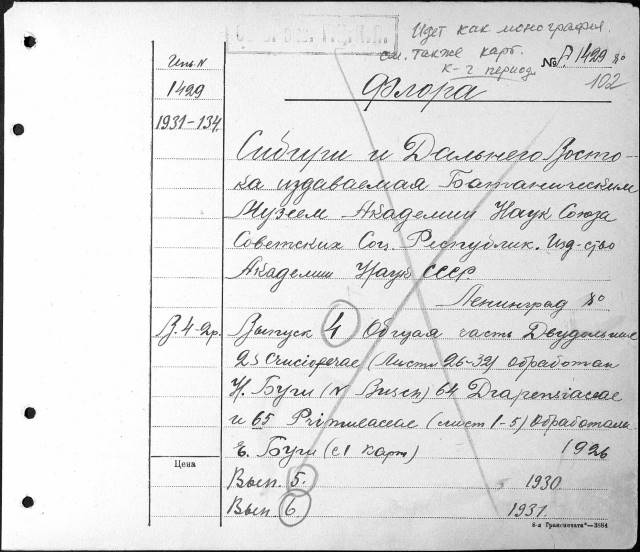 Идет как монография.
см. также карт.
к-г период.
№ П 1429 8°
102
Инв. N
1429
1931-134
Флора
Сибири и Дальнего Восто-
ка издаваемая Ботаническим
Музеем Академии Наук Союза
Советских Соц. Республик. Изд-ство
Академии Наук СССР
Ленинград 8°
В. 4-2р. Выпуск 4 Общая часть Двудольные
25 Cruciferae (Листы 26-32) обработан
Н. Буш (N Busch) 64 Diapensiaceae
и 65 Primulaceae (лист 1-5) Обработала
Е. Буш (с 1 карт) 1926
Цена
Вып. 5. 1930
Вып 6 1931
8-я Гранспечати"—3884